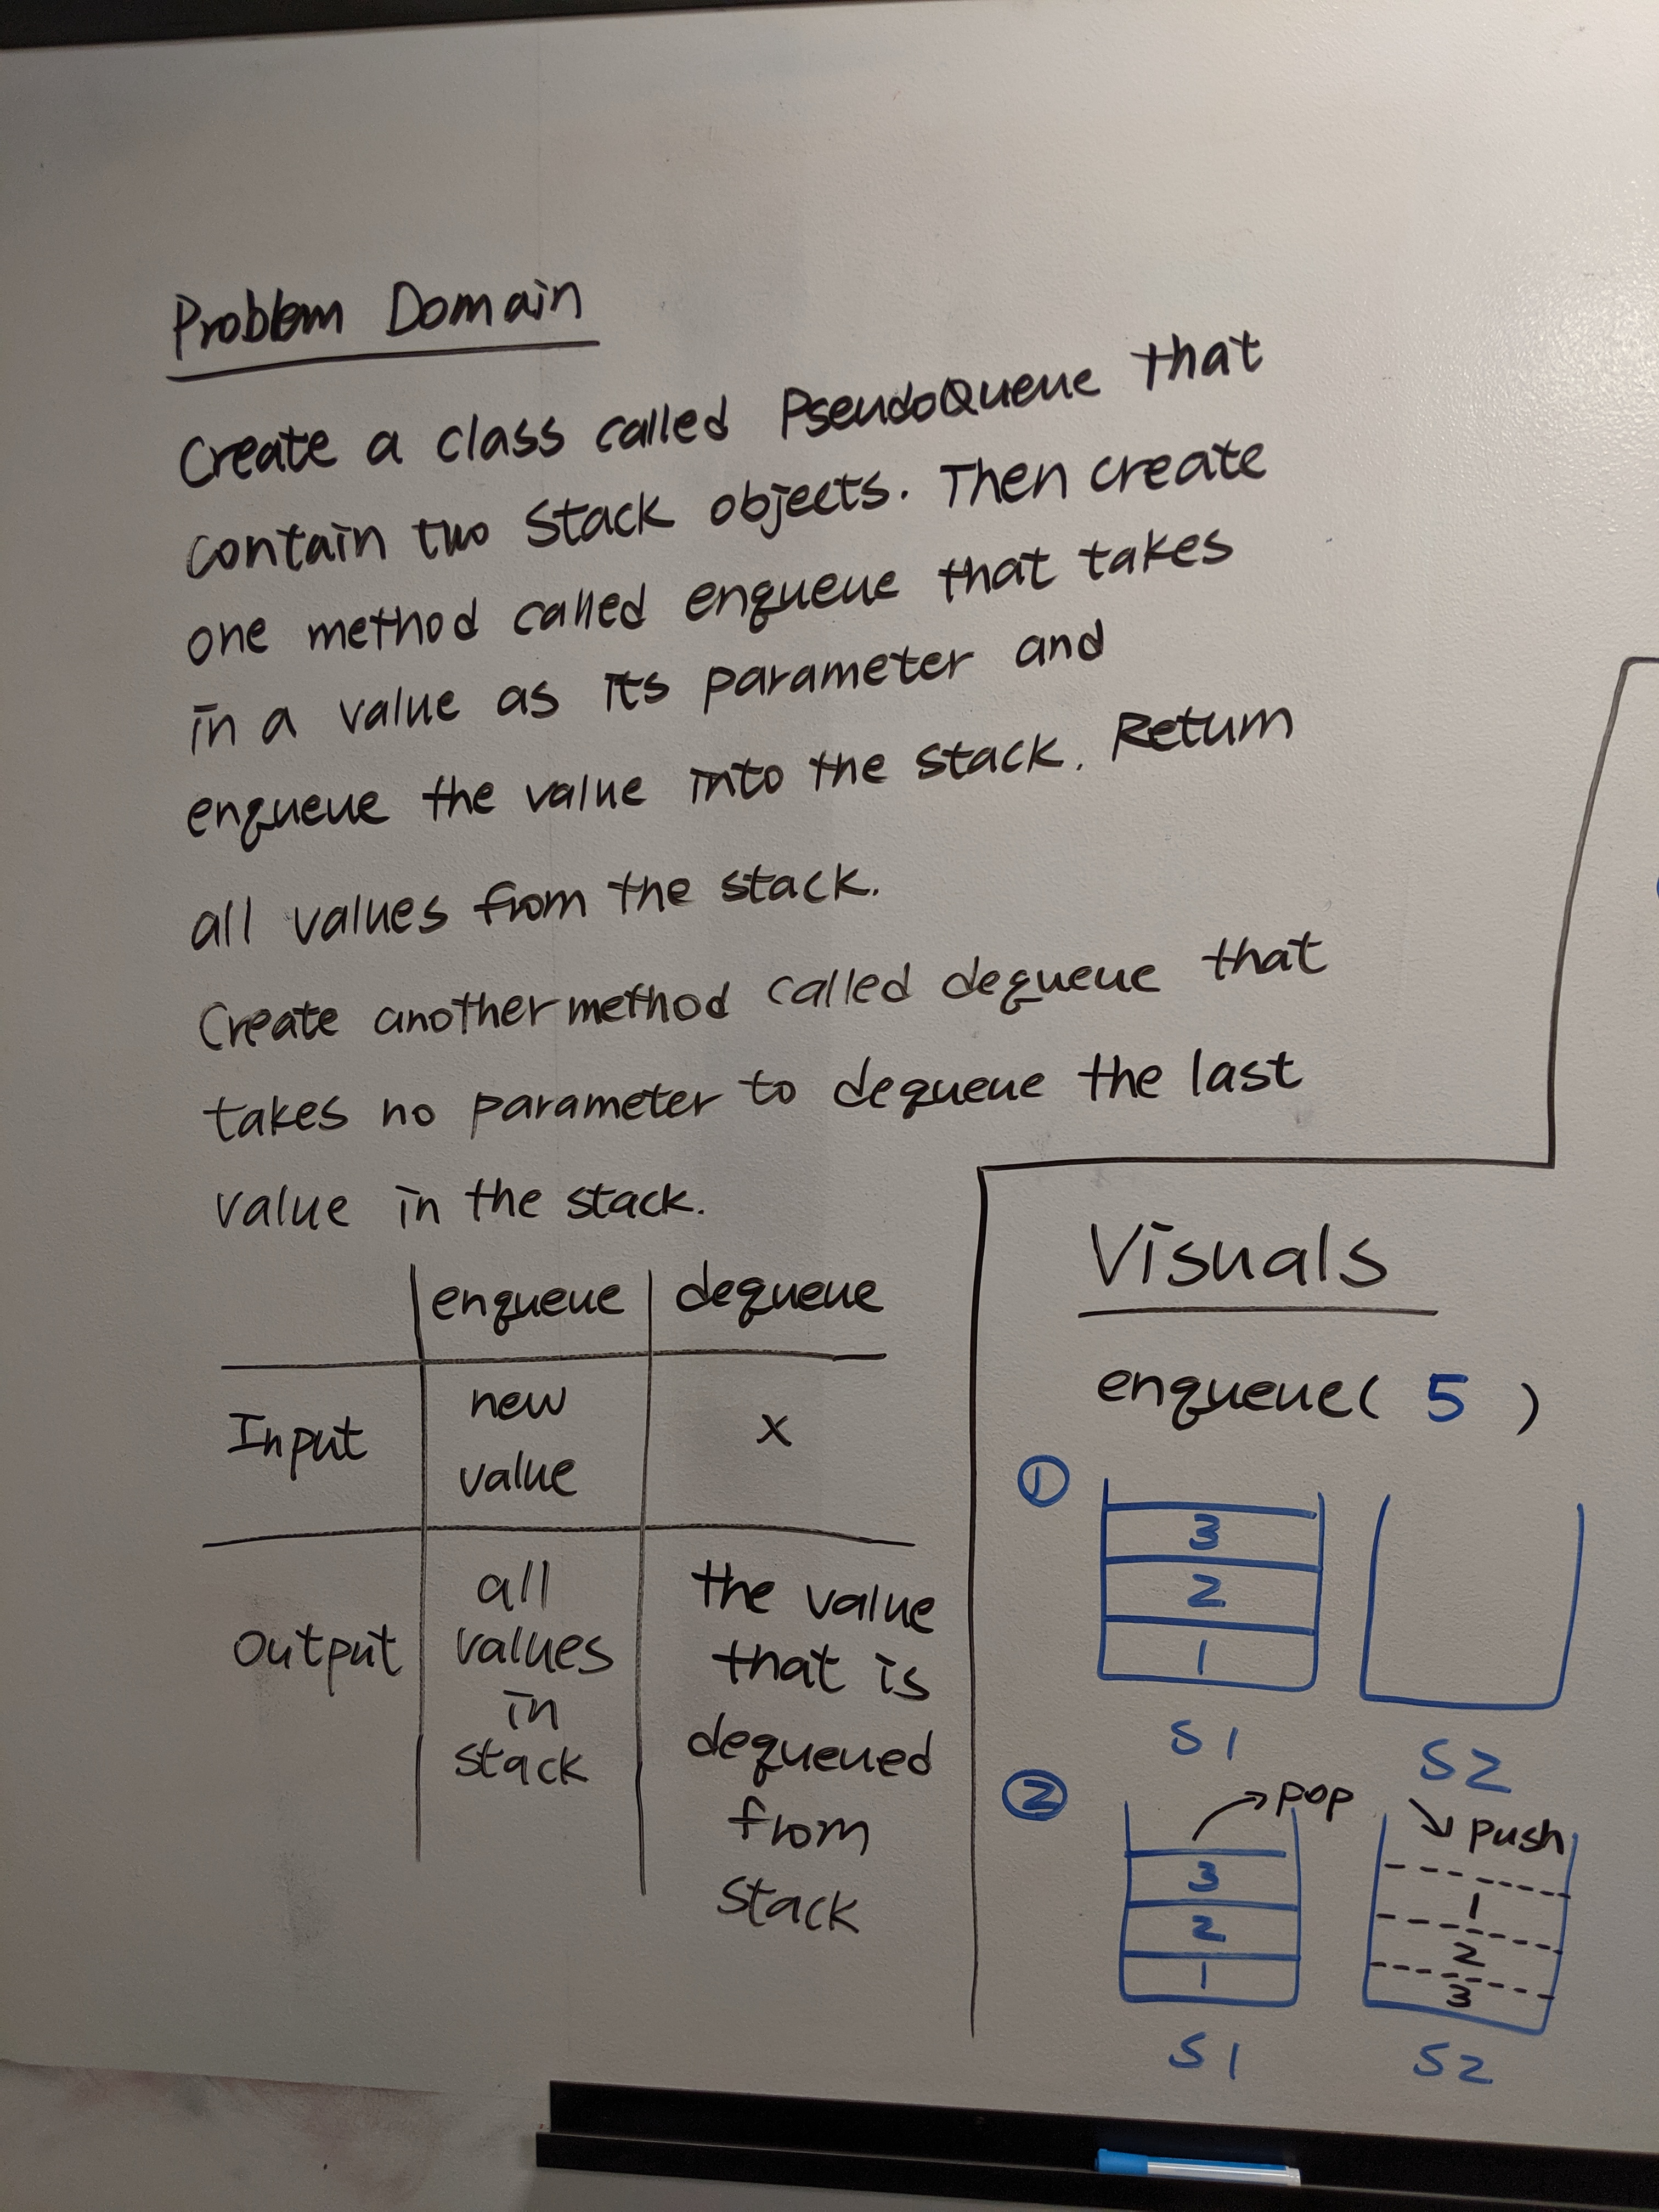 Problem Domain
Create a class called PseudoQueue that
contain two Stack objects. Then create
one method called enqueue that takes
in a value as its parameter and
enqueue the value into the stack. Return
all values from the stack.
Create another method called dequeue that
takes no parameter to dequeue the last
value in the stack.
enqueue dequeue
Input new value x
Output all values in stack the value that is dequeued from stack
Visuals
enqueue( 5 )
①
3
2
1
S1 S2
②
pop push
3
2
1
1
2
3
S1 S2